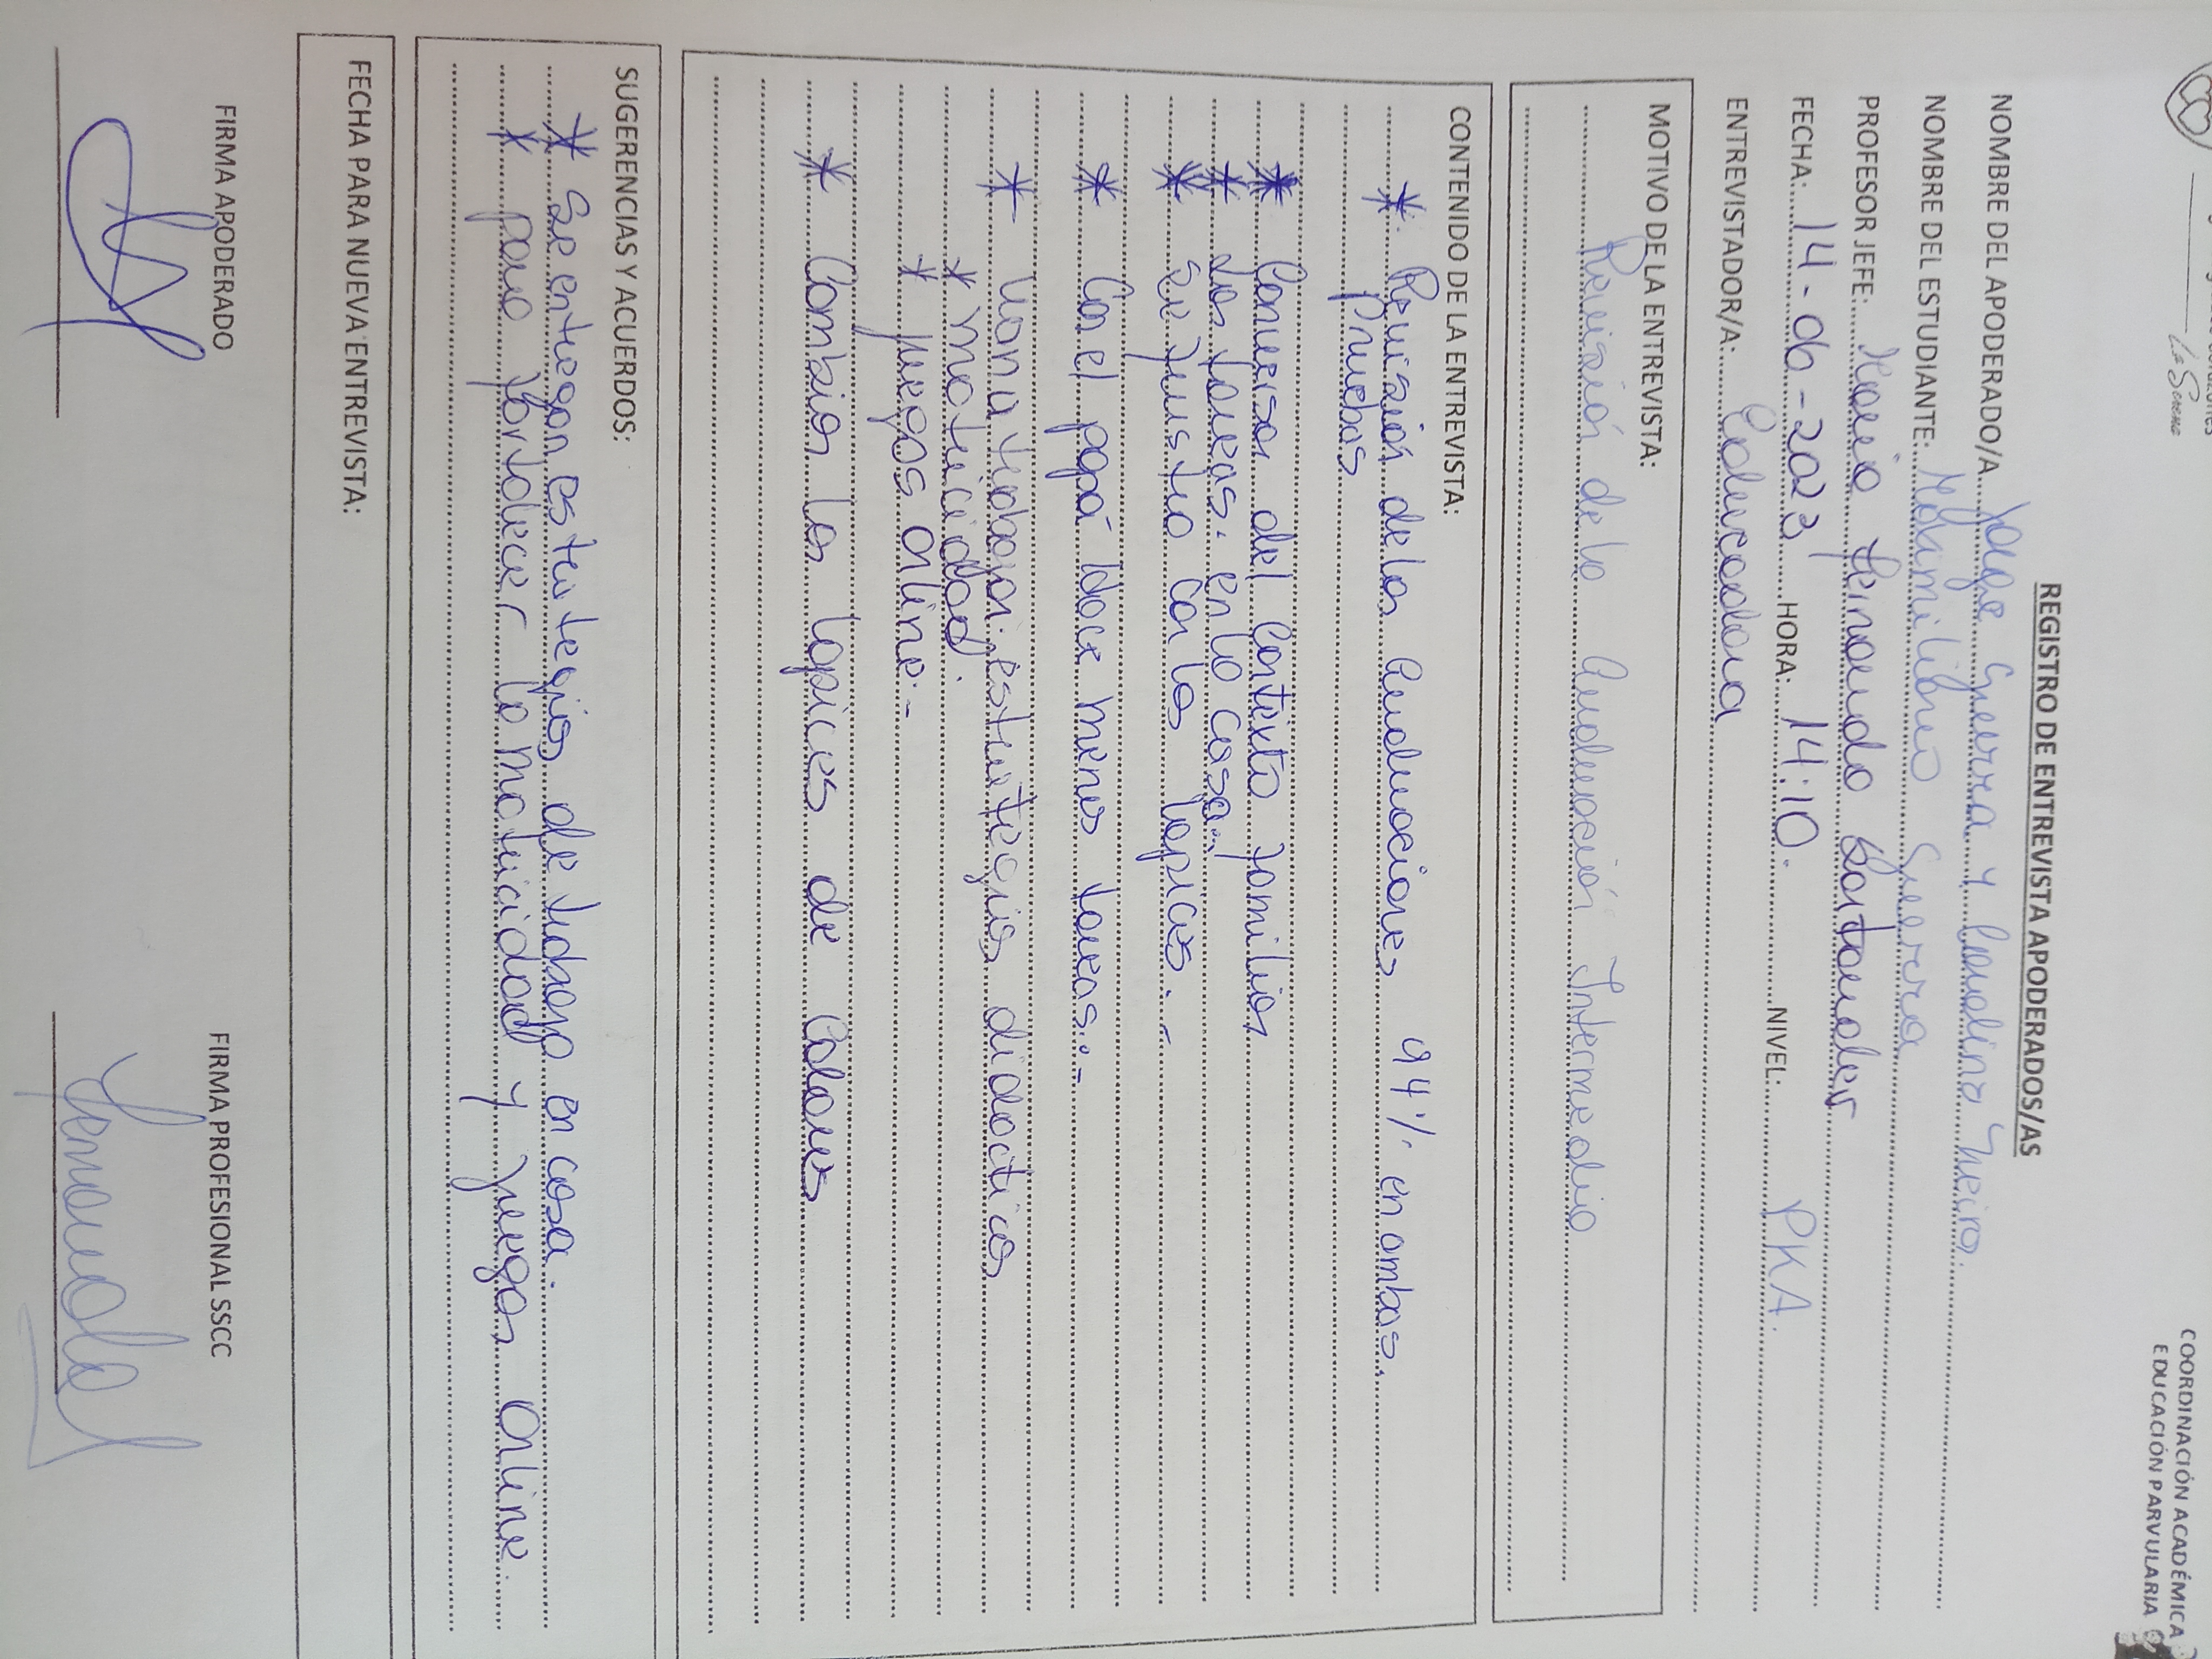 La Serena
COORDINACIÓN ACADÉMICA
EDUCACIÓN PARVULARIA
REGISTRO DE ENTREVISTA APODERADOS/AS
NOMBRE DEL APODERADO/A Jorge Guerra y Carolina
NOMBRE DEL ESTUDIANTE: Maximiliano Guerra
PROFESOR JEFE: María Fernanda Santander
FECHA: 14-06-2023 HORA: 14:10. NIVEL: PKA.
ENTREVISTADOR/A: Educadora
MOTIVO DE LA ENTREVISTA:
Revisión de la Evaluación Intermedia
CONTENIDO DE LA ENTREVISTA:
* Revisión de las Evaluaciones 94% en ambas.
Pruebas
* Conversar del contexto familiar
* Las tareas. en la casa.
* Se frustra con los lapices.-
* Con el papá hace menos tareas.-
* Mamá trabajar. estrategias didacticas
* motricidad.
* juegos online.-
* Cambiar los lapices de colores
SUGERENCIAS Y ACUERDOS:
* Se entregan estrategias de trabajo en casa.
* para fortalecer la motricidad y juegos online.
FECHA PARA NUEVA ENTREVISTA:
FIRMA APODERADO FIRMA PROFESIONAL SSCC